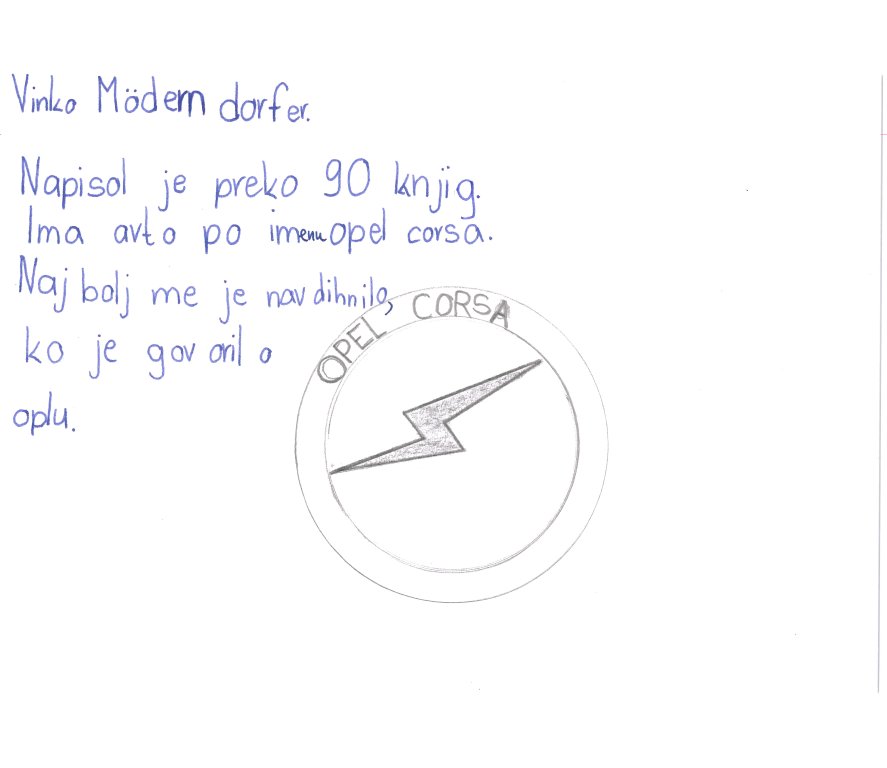 Vinko Mödern dorfer.
Napisol je preko 90 knjig.
Ima avto po imenu opel corsa.
Naj bolj me je nav dihnilo,
ko je gov oril o
oplu.
OPEL CORSA